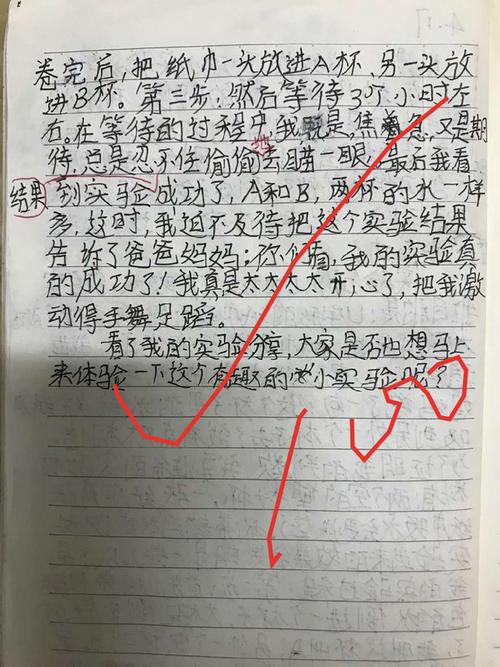 卷完后，把纸巾一头放进A杯，另一头放
进B杯。第三步：然后等待3个小时左
右。在等待的过程中，我既是焦急，又是期
待，总是忍不住偷偷去瞄一眼。最后我看
结果
到实验成功了，A和B，两杯的水一样
多，这时，我迫不及待把这个实验结果
告诉了爸爸妈妈：你们瞧，我的实验真
的成功了！我真是太太太太开心了，把我激
动得手舞足蹈。
看了我的实验分享，大家是否也想马上
来体验一下这个有趣的小实验呢？